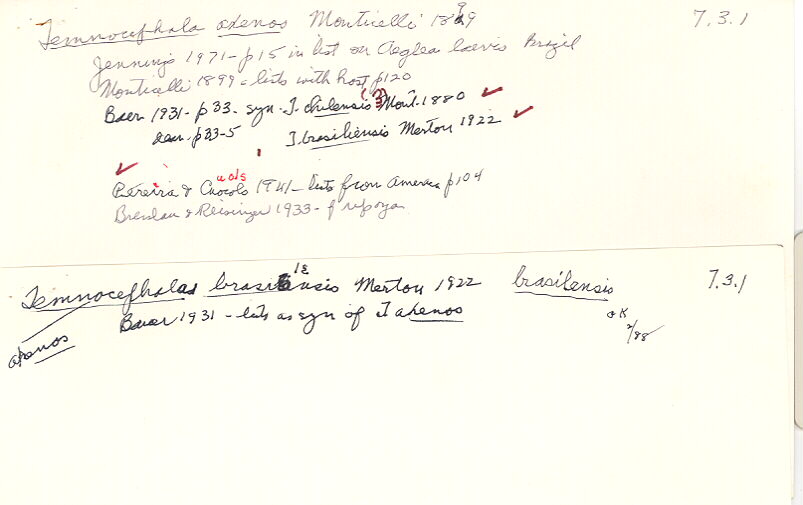 Temnocephala axenos Monticelli 1899 7.3.1
Jennings 1971 - p15 in list on Aeglea laevis Brazil
Monticelli 1899 - lists with host p120
Baer 1931 - p33 - syn. T. chilensis (3) Mont. 1880 ✓
p33-5 T. brasiliensis Merton 1922 ✓
✓
uols
Pereira & Cuocolo 1941 - lists from America p104
Breslau & Reisinger 1933 - f
Temnocephala brasiliensis Merton 1922 brasilensis 7.3.1
Baer 1931 - lists as syn of T axenos
axenos
OK
2/88